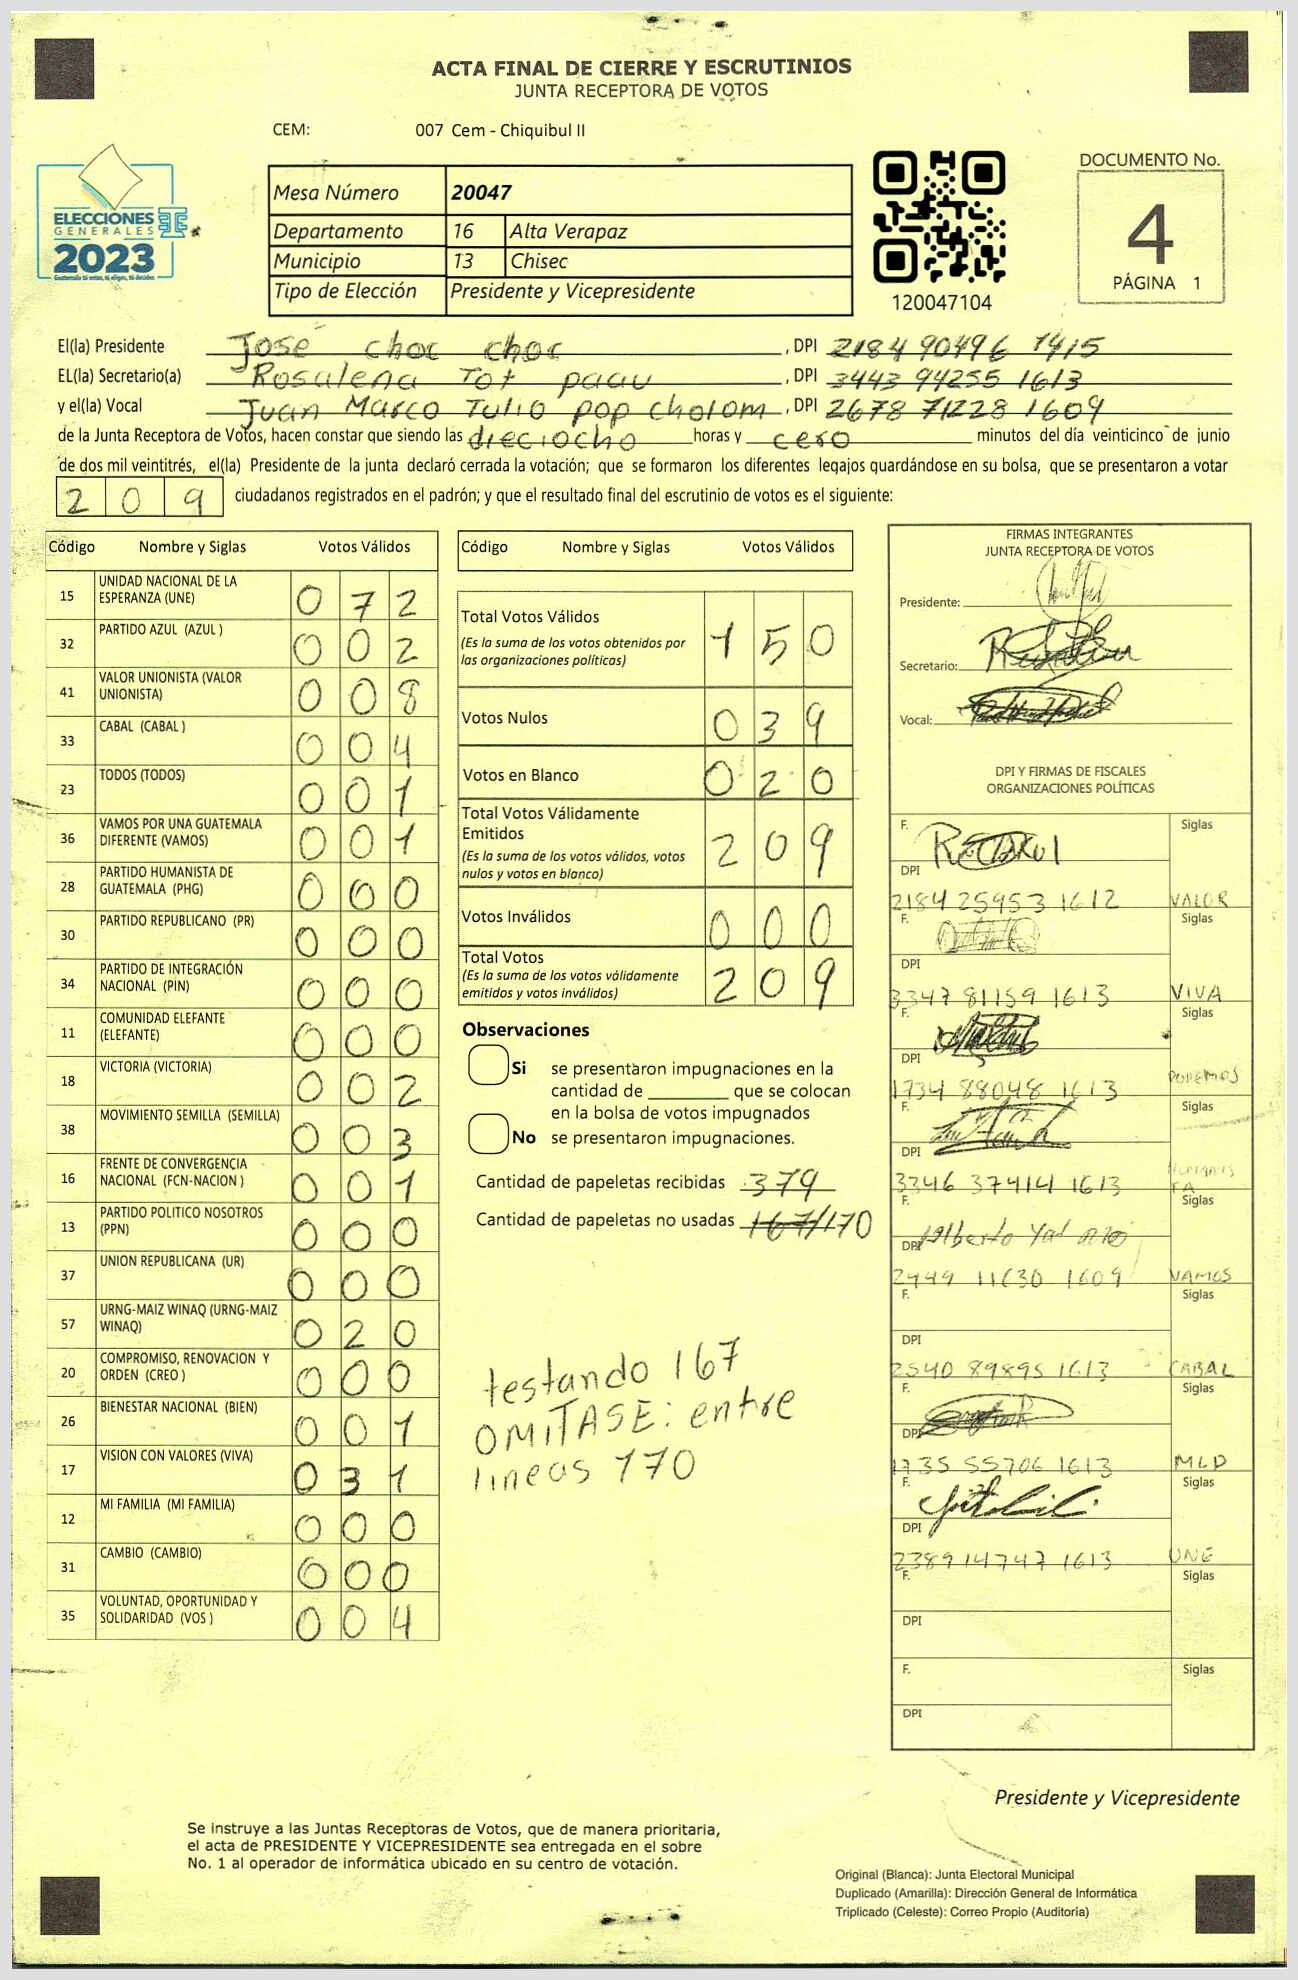 ACTA FINAL DE CIERRE Y ESCRUTINIOS
JUNTA RECEPTORA DE VOTOS
CEM: 007 Cem - Chiquibul II
ELECCIONES
GENERALES
2023
Mesa Número 20047
Departamento 16 Alta Verapaz
Municipio 13 Chisec
Tipo de Elección Presidente y Vicepresidente
120047104
DOCUMENTO No.
4
PÁGINA 1
El(la) Presidente José choc choc , DPI 2184 90496 1415
EL(la) Secretario(a) Rosalena Tot paau , DPI 3443 94255 1613
y el(la) Vocal Juan Marco Tulio pop cholom , DPI 2678 71228 1609
de la Junta Receptora de Votos, hacen constar que siendo las dieciocho horas y cero minutos del día veinticinco de junio
de dos mil veintitrés, el(la) Presidente de la junta declaró cerrada la votación; que se formaron los diferentes legajos quardándose en su bolsa, que se presentaron a votar
209 ciudadanos registrados en el padrón; y que el resultado final del escrutinio de votos es el siguiente:
Código Nombre y Siglas Votos Válidos
15 UNIDAD NACIONAL DE LA ESPERANZA (UNE) 072
32 PARTIDO AZUL (AZUL ) 002
41 VALOR UNIONISTA (VALOR UNIONISTA) 008
33 CABAL (CABAL ) 004
23 TODOS (TODOS) 001
36 VAMOS POR UNA GUATEMALA DIFERENTE (VAMOS) 001
28 PARTIDO HUMANISTA DE GUATEMALA (PHG) 000
30 PARTIDO REPUBLICANO (PR) 000
34 PARTIDO DE INTEGRACIÓN NACIONAL (PIN) 000
11 COMUNIDAD ELEFANTE (ELEFANTE) 000
18 VICTORIA (VICTORIA) 002
38 MOVIMIENTO SEMILLA (SEMILLA) 003
16 FRENTE DE CONVERGENCIA NACIONAL (FCN-NACION ) 001
13 PARTIDO POLITICO NOSOTROS (PPN) 000
37 UNION REPUBLICANA (UR) 000
57 URNG-MAIZ WINAQ (URNG-MAIZ WINAQ) 020
20 COMPROMISO, RENOVACION Y ORDEN (CREO ) 000
26 BIENESTAR NACIONAL (BIEN) 001
17 VISION CON VALORES (VIVA) 031
12 MI FAMILIA (MI FAMILIA) 000
31 CAMBIO (CAMBIO) 000
35 VOLUNTAD, OPORTUNIDAD Y SOLIDARIDAD (VOS ) 004
Código Nombre y Siglas Votos Válidos
Total Votos Válidos 150
(Es la suma de los votos obtenidos por
las organizaciones políticas)
Votos Nulos 039
Votos en Blanco 020
Total Votos Válidamente
Emitidos 209
(Es la suma de los votos válidos, votos
nulos y votos en blanco)
Votos Inválidos 000
Total Votos 209
(Es la suma de los votos válidamente
emitidos y votos inválidos)
Observaciones
Si se presentaron impugnaciones en la
cantidad de ________ que se colocan
en la bolsa de votos impugnados
No se presentaron impugnaciones.
Cantidad de papeletas recibidas 379
Cantidad de papeletas no usadas 167/170
testando 167
OMITASE: entre
lineas 170
FIRMAS INTEGRANTES
JUNTA RECEPTORA DE VOTOS
Presidente:
Secretario:
Vocal:
DPI Y FIRMAS DE FISCALES
ORGANIZACIONES POLÍTICAS
F. Siglas
DPI
2184 25953 1612 VALOR
F. Siglas
DPI
3347 81159 1613 VIVA
F. Siglas
DPI
1734 88048 1613 PODEMOS
F. Siglas
DPI
3346 37414 1613 HUMANISTA
F. Siglas
DPI
2949 11630 1609 VAMOS
F. Siglas
DPI
2540 89895 1613 CABAL
F. Siglas
DPI
1735 55706 1613 MLP
F. Siglas
DPI
2389 14747 1613 UNE
F. Siglas
DPI
F. Siglas
DPI
Presidente y Vicepresidente
Se instruye a las Juntas Receptoras de Votos, que de manera prioritaria,
el acta de PRESIDENTE Y VICEPRESIDENTE sea entregada en el sobre
No. 1 al operador de informática ubicado en su centro de votación.
Original (Blanca): Junta Electoral Municipal
Duplicado (Amarilla): Dirección General de Informática
Triplicado (Celeste): Correo Propio (Auditoría)